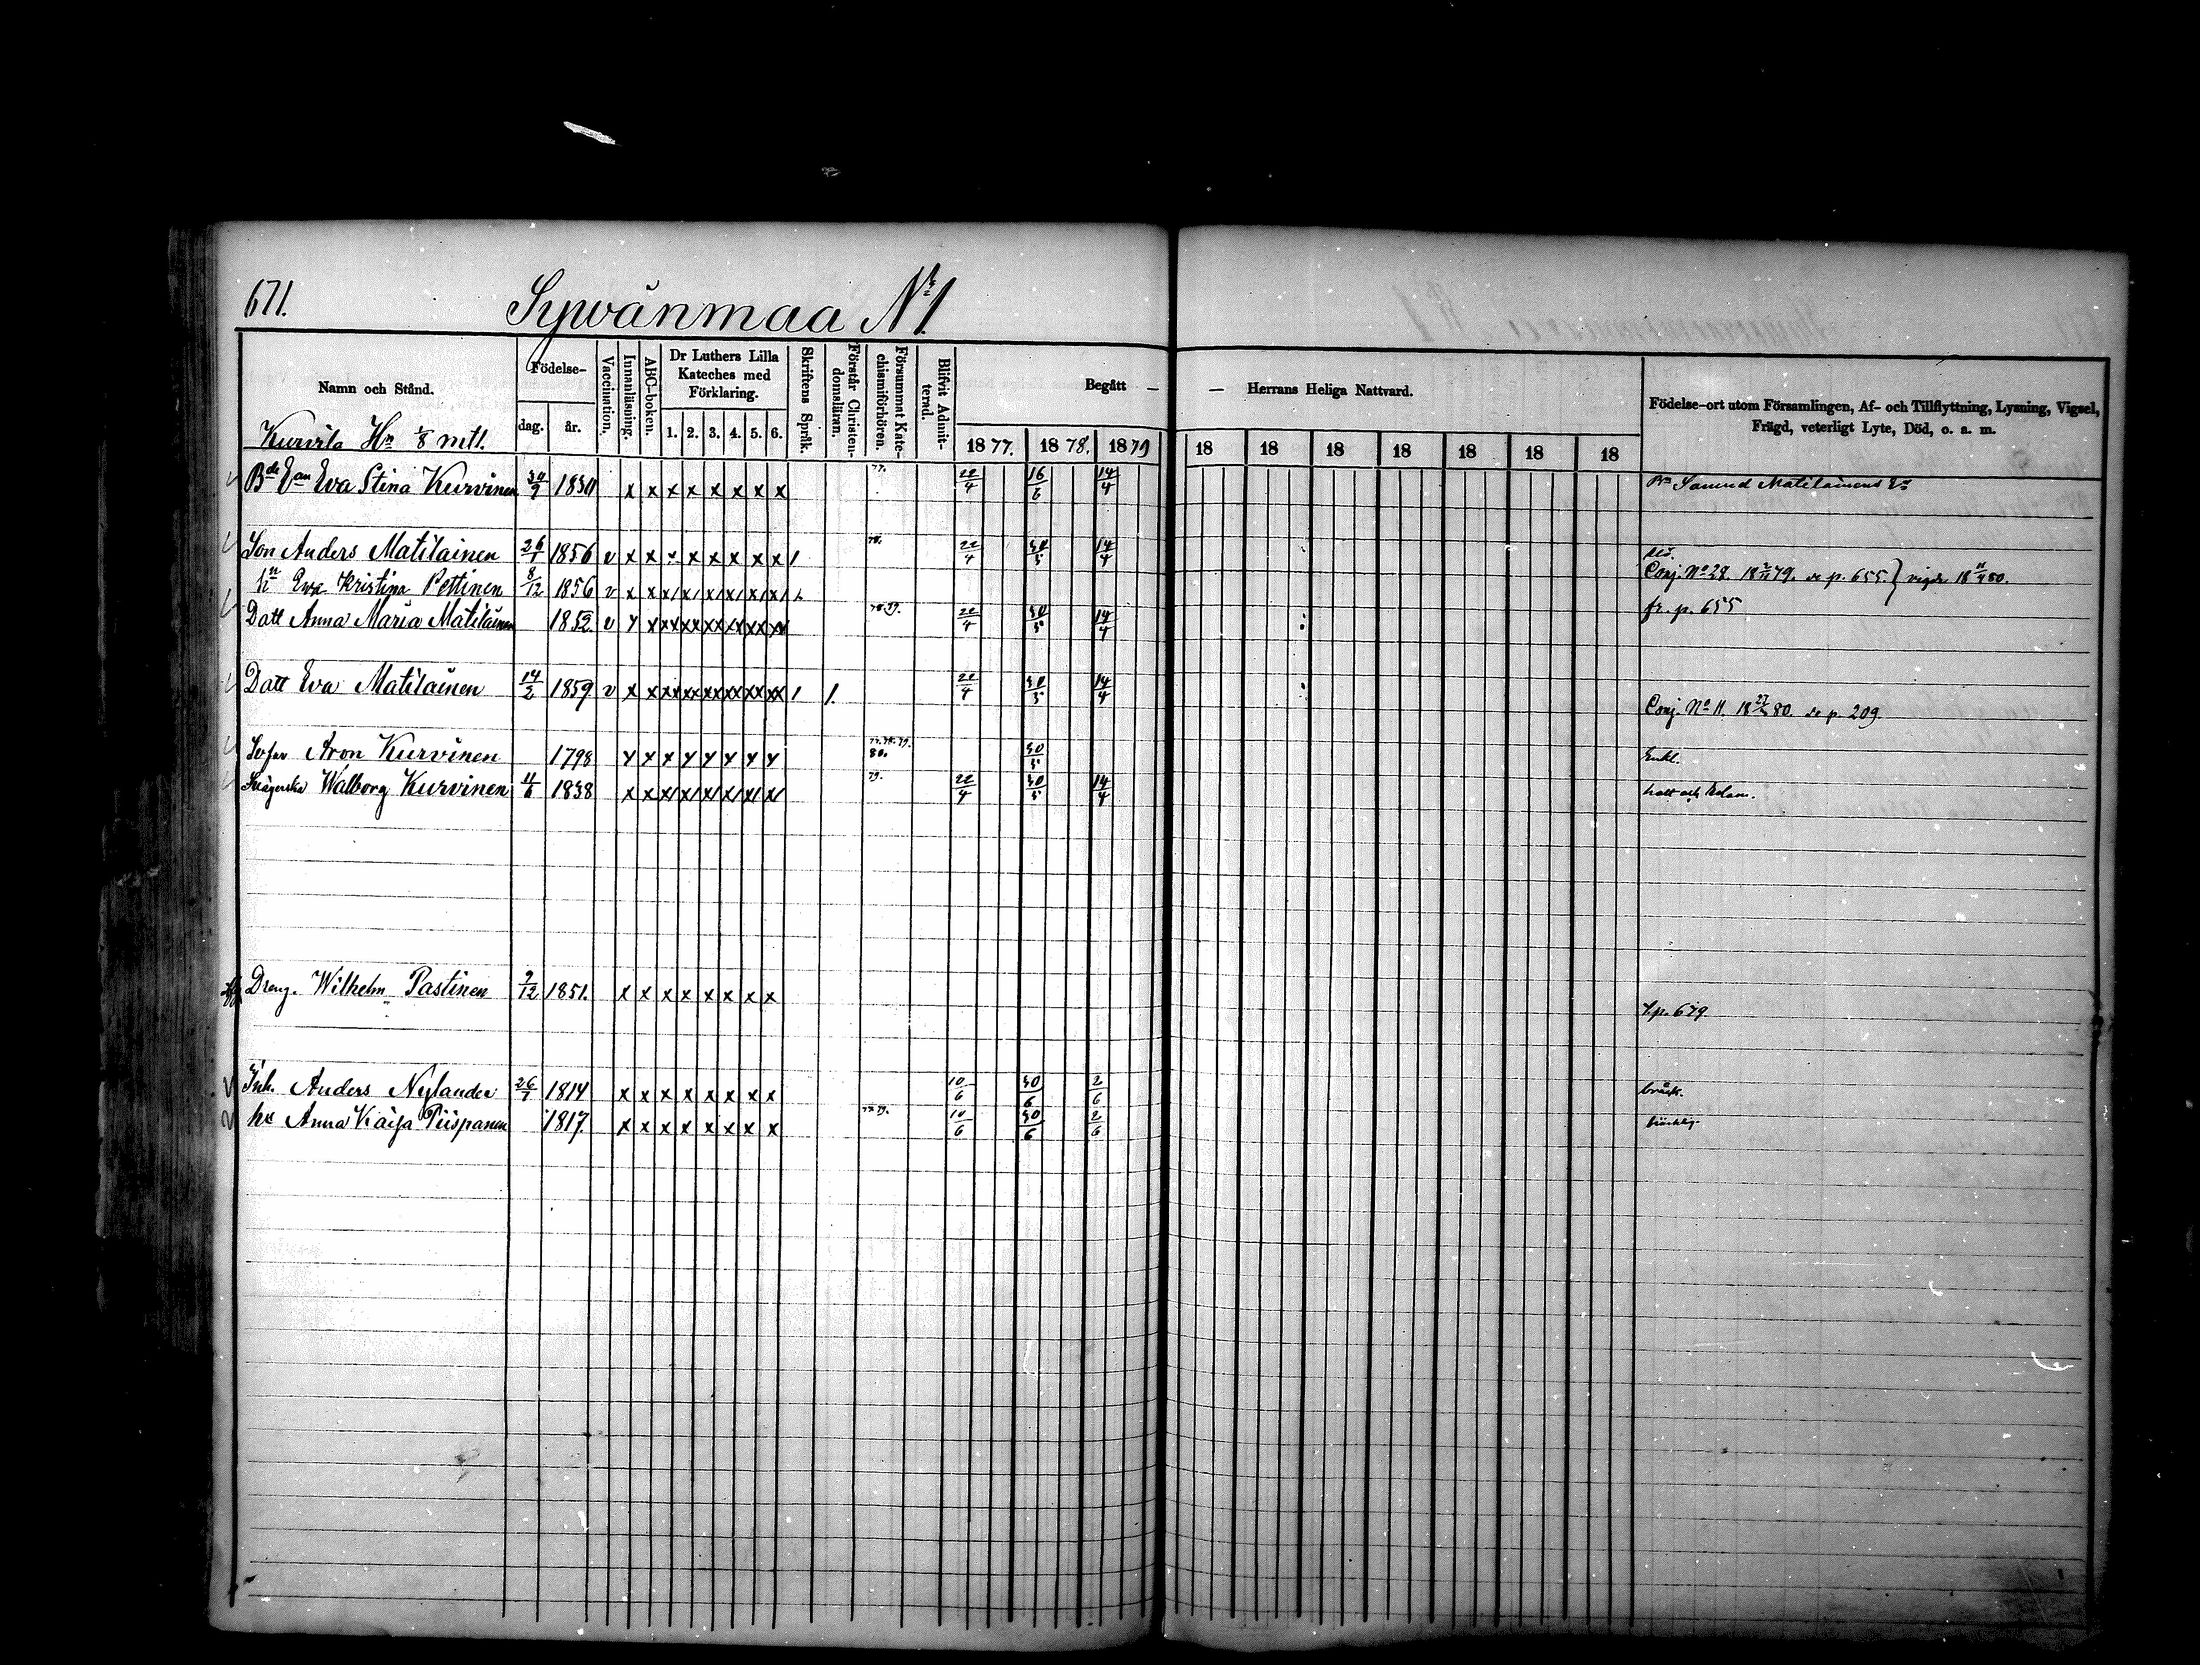 671.
Sywänmaa No 1
Namn och Stånd.
Födelse-
dag.
år.
Vaccination.
Innanläsning.
ABC-boken.
Dr Luthers Lilla Kateches med Förklaring.
1. 2. 3. 4. 5. 6.
Skriftens Språk.
Förstår Christendomsläran.
Försummat Katechismiförhören.
Blifvit Admitterad.
Begått — — Herrans Heliga Nattvard.
1877. 1878. 1879 18 18 18 18 18 18 18
Födelse-ort utom Församlingen, Af- och Tillflyttning, Lysning, Vigsel,
Frägd, veterligt Lyte, Död, o. a. m.
Kurvila Hn 1/8 mtl.
Bde Ean Eva Stina Kurvinen 1830 x x x x x x x x 77. 22/4 16/6 14/4 Matilainens
Son Anders Matilainen 26/1 1856 v x x x x x x x x 1 78. 22/4 30/5 14/4
hn Eva Kristina Pettinen 8/12 1856 v Conj. No 28. 18 79. se p. 655. } vigde 18 80.
Datt Anna Maria Matilainen 1852 v 78.79. 22/4 30/5 14/4 fr. p. 655
Datt Eva Matilainen 14/2 1859 v 1 1. 22/4 30/5 14/4
Conj. No 11. 18 80. se p. 209.
Aron Kurvinen 1798 77.78.79. 80. 30/5 Enkl.
Svägerska Walborg Kurvinen 4/6 1838 79. 22/4 30/5 14/4
Dreng. Wilhelm Pastinen 9/12 1851. x x x x x x x x
p. 679
Inh. Anders Nylander 26/1 1814 x x x x x x x x 10/6 30/6 2/6 bräck.
hu Anna Kaisa Piispanen 1817. x x x x x x x x 77.79. 10/6 30/6 2/6